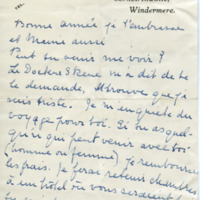 Windermere.
Bonne année je t'embrasse
et Mama aussi
Peut tu venir me voir ?
Le Docteur Skene m'a dit de te
le demander, il trouve que je
suis triste. Je m'enquete du
voyage pour toi. Si tu as quel-
qu'un qui peut venir avec toi
(homme ou femme) je rembourse
les frais. Je ferai retenir chambres
à un hotel où vous seraient